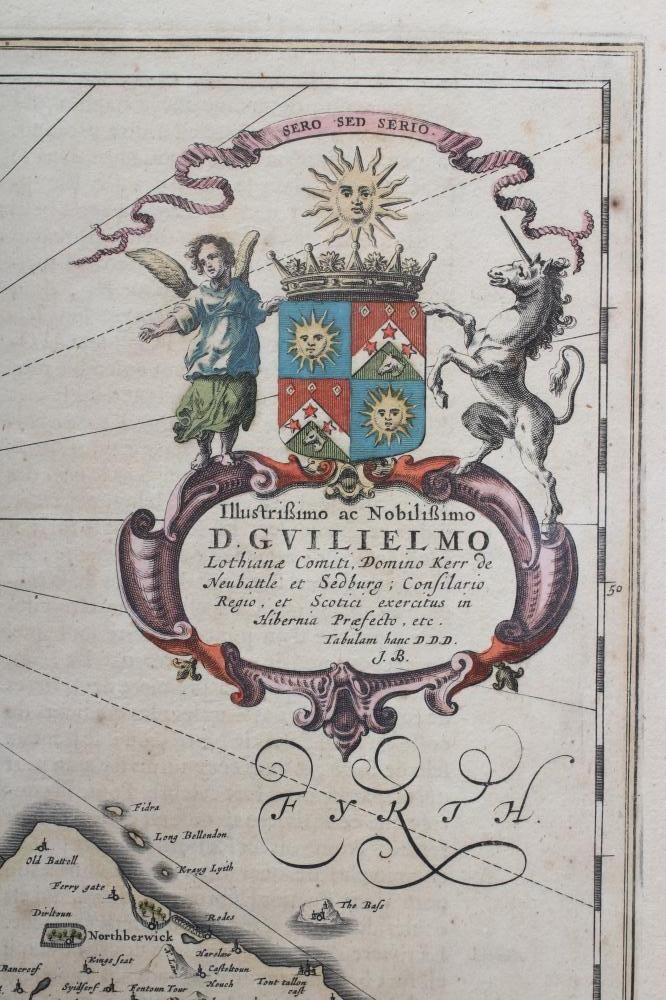 SERO SED SERIO.
Illustrißimo ac Nobilißimo
D. GVILIELMO
Lothianæ Comiti, Domino Kerr de
Neubattle et Sedburg; Consilario
Regio, et Scotici exercitus in
Hibernia Præfecto, etc.
Tabulam hanc D.D.D.
J. B.
50
FYRTH.
Fidra
Long Bellendon
Old Battell
Krayg Lyith
Ferry gate
The Bass
Dirltoun
Rodes
Northberwick
Kings seat
Casteltoun
Tont tallon
cast
Sydserf
Fentoun Tour
Heuch